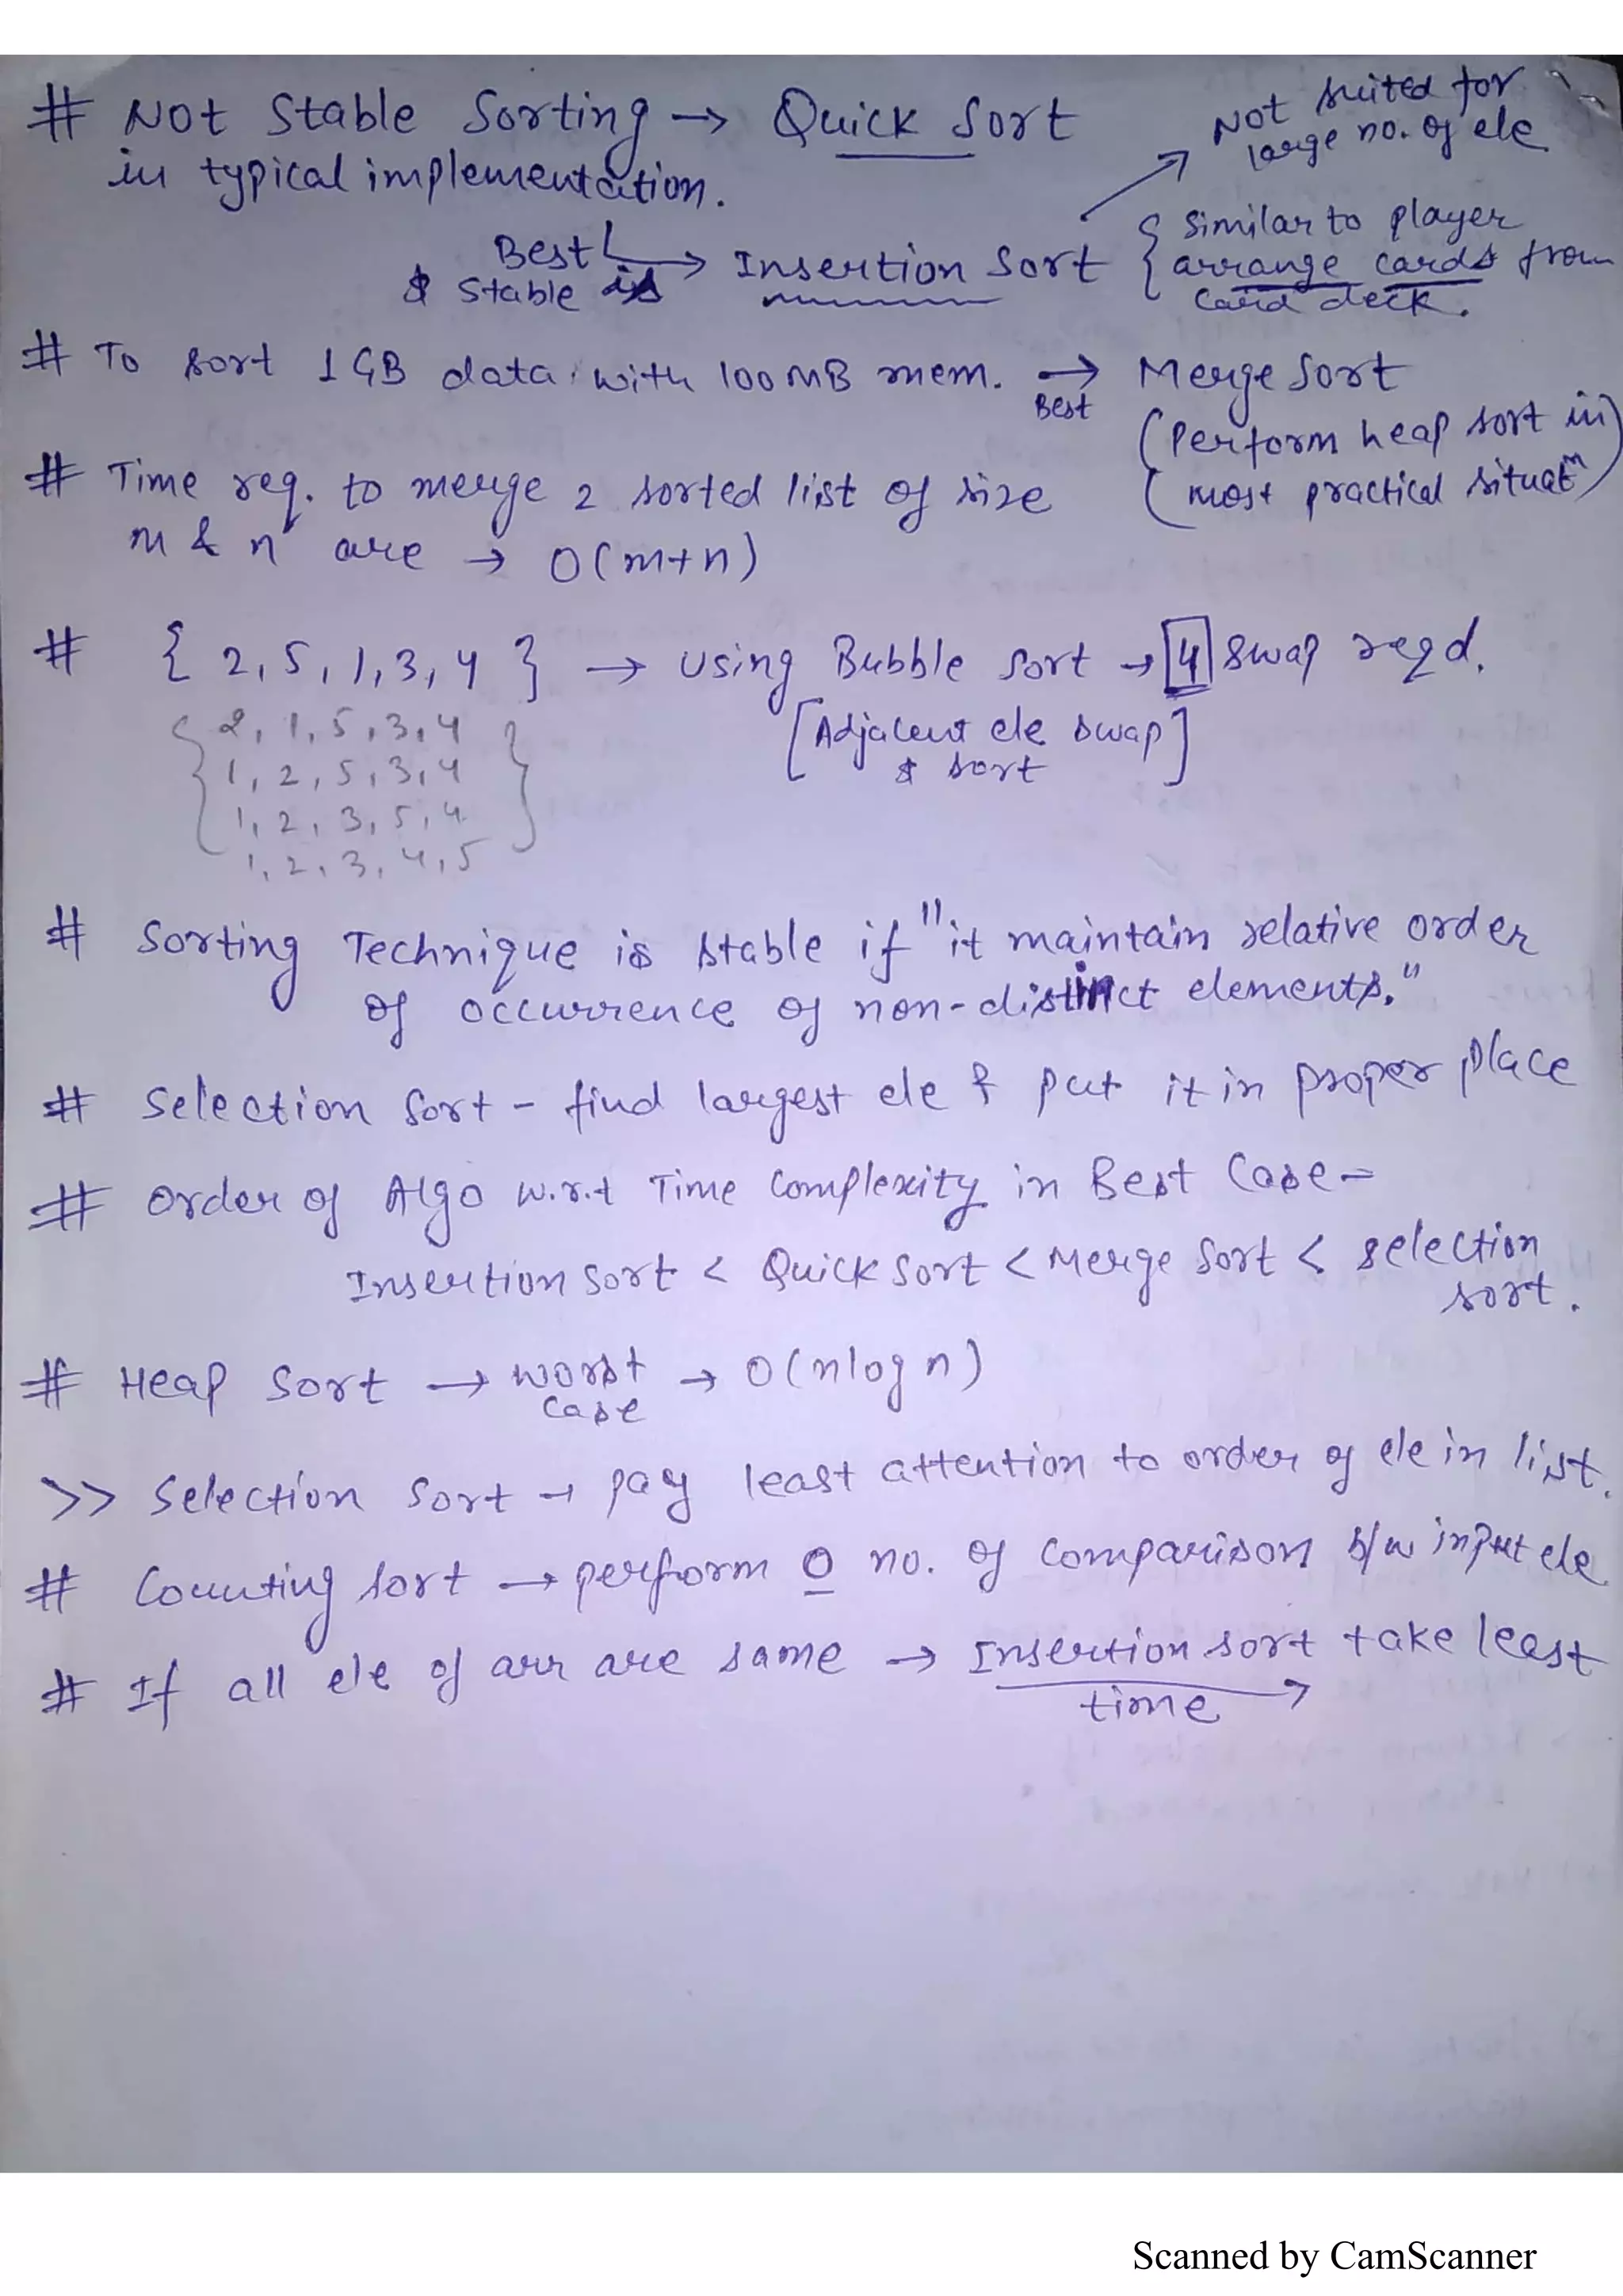 # Not Stable Sorting → Quick Sort
in typical implementation.
Not suited for
large no. of ele
Best & Stable is → Insertion Sort { similar to player
arrange cards from
card deck.
# To sort 1 GB data with 100 MB mem. → Best Merge Sort
(Perform heap sort in
most practical situatn)
# Time req. to merge 2 sorted list of size
m & n are → O(m+n)
# { 2, 5, 1, 3, 4 } → using Bubble sort → 4 swap reqd.
[Adjacent ele swap
& sort]
{ 2, 1, 5, 3, 4
1, 2, 5, 3, 4
1, 2, 3, 5, 4 }
1, 2, 3, 4, 5
# Sorting Technique is stable if "it maintain relative order
of occurrence of non-distinct elements."
# Selection Sort - find largest ele & put it in proper place
# Order of Algo w.r.t Time Complexity in Best Case -
Insertion Sort < Quick Sort < Merge Sort < selection
sort.
# Heap Sort → worst case → O(n log n)
>> Selection Sort → pay least attention to order of ele in list.
# Counting sort → perform 0 no. of comparison b/w input ele
# If all ele of arr are same → Insertion sort take least
time
Scanned by CamScanner